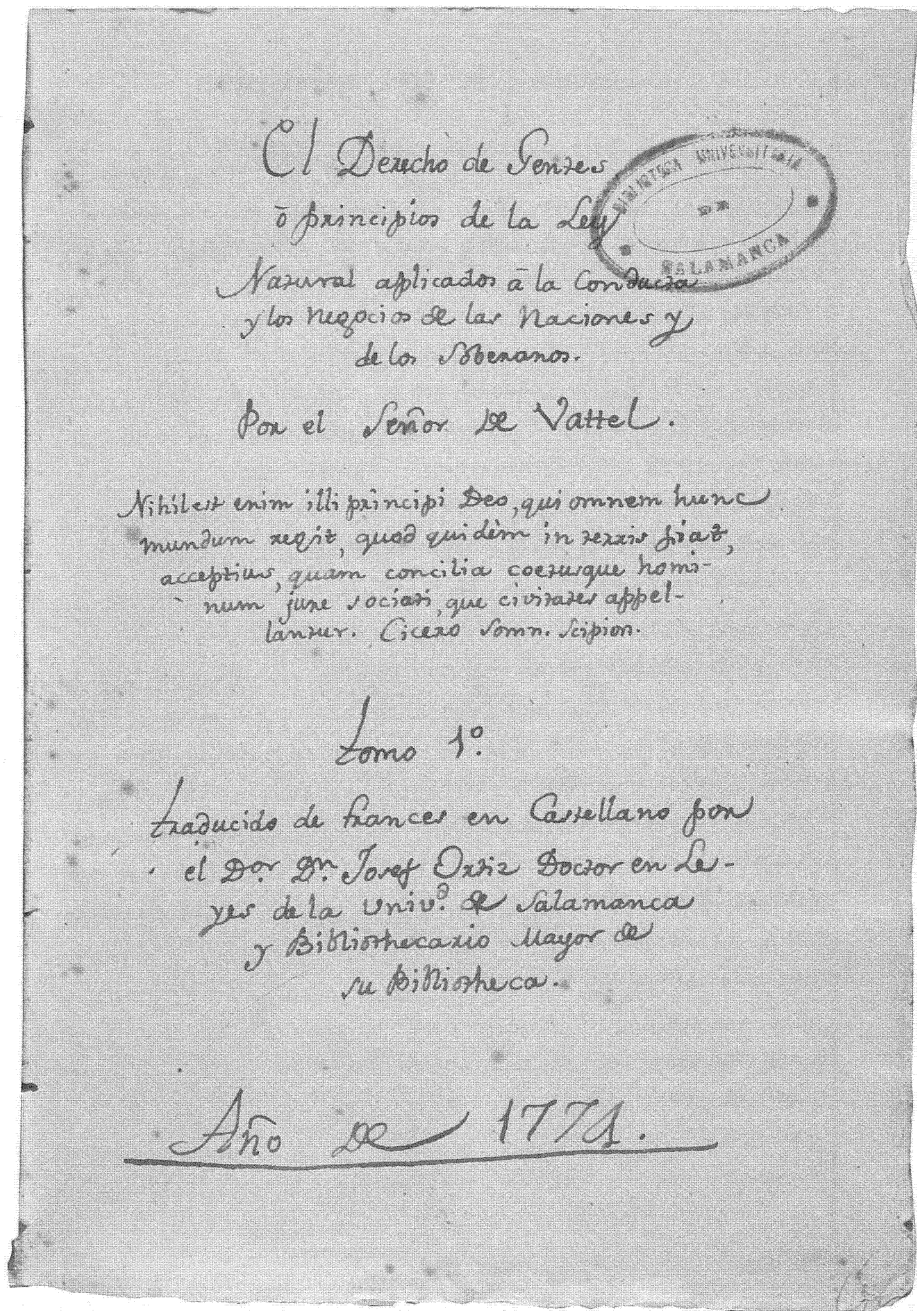 El Derecho de Gentes
ō principios de la Ley
Natural aplicados ā la Conducta
y los Negocios de las Naciones y
de los Soberanos.
Por el Señor de Vattel.
Nihil est enim illi principi Deo, qui omnem hunc
mundum regit, quod quidèm in terris fiat,
acceptius, quam concilia coetusque homi-
num jure sociati, que civitates appel-
lantur. Cicero somn. Scipion.
tomo 1º.
traducido de frances en Castellano por
el Dor. Dn. Josef Ortiz Doctor en Le-
yes de la Univd. de Salamanca
y Bibliothecario Mayor de
su Bibliotheca.
Año de 1771.
BIBLIOTECA UNIVERSITARIA
DE
SALAMANCA